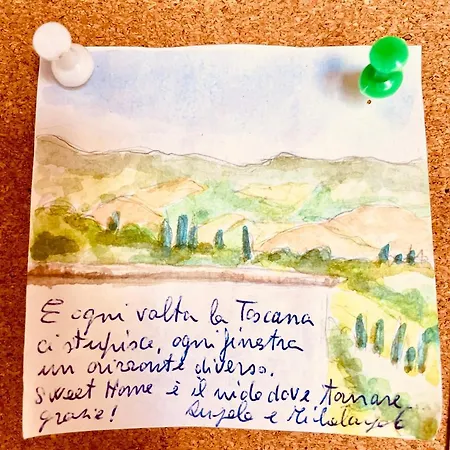 E ogni volta la Toscana
ci stupisce, ogni finestra
un orizzonte diverso.
Sweet Home è il nido dove tornare
grazie! Angela e Michelangelo